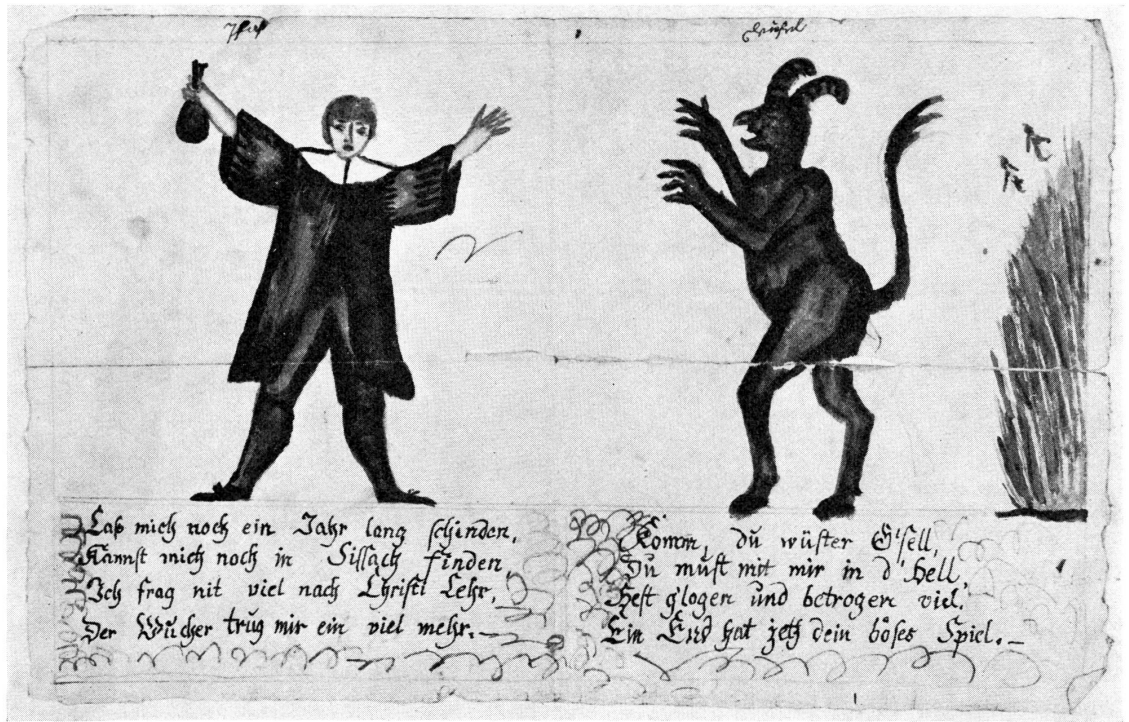 Teüfel
Laß mich noch ein Jahr lang schinden,
Kannst mich noch in Sissach finden
Ich frag nit viel nach Christi Lehr,
Der Wucher trug mir ein viel mehr.—
Komm, du wüster G'sell,
Du must mit mir in d'Hell,
Hest g'logen und betrogen viel.
Ein End hat jetz dein böses Spiel.—